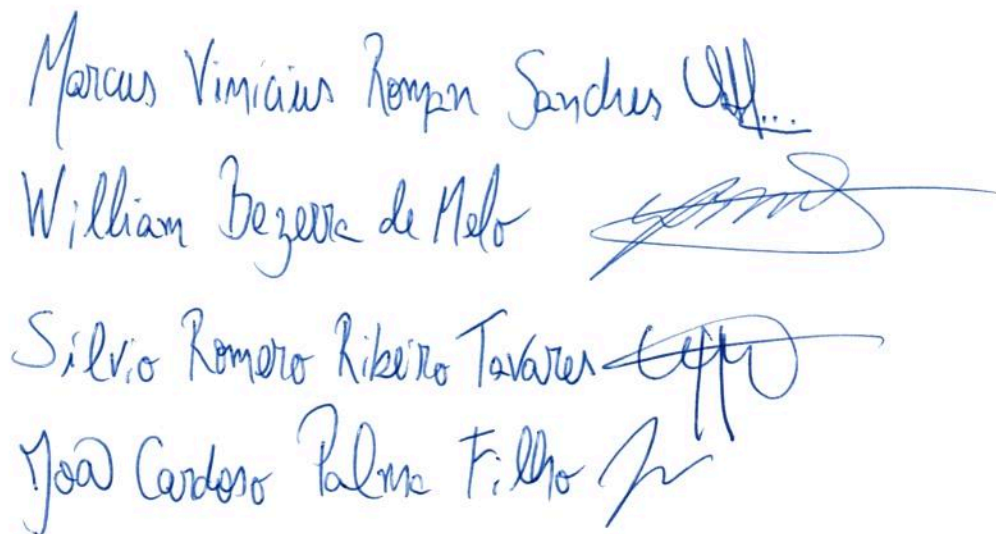 Marcus Vinicius Roman Sanches
William Bezerra de Melo
Silvio Romero Ribeiro Tavares
João Cardoso Palma Filho